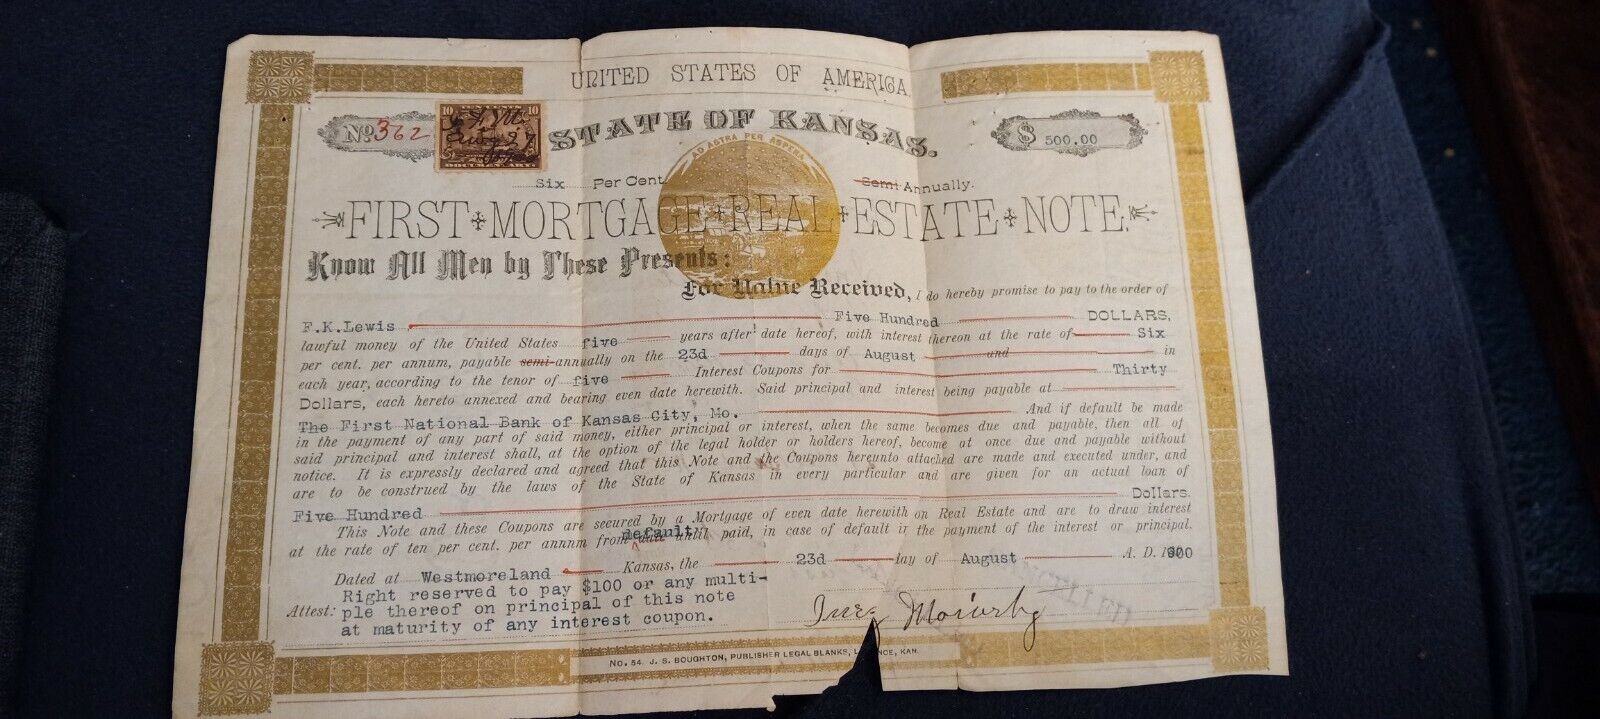 UNITED STATES OF AMERICA
No 362
10 TEN CENTS 10
DOCUMENTARY
STATE OF KANSAS.
$ 500.00
AD ASTRA PER ASPERA
Six Per Cent. Semi Annually.
FIRST MORTGAGE REAL ESTATE NOTE.
Know All Men by These Presents:
For Value Received, I do hereby promise to pay to the order of
F.K.Lewis Five Hundred DOLLARS,
lawful money of the United States five years after date hereof, with interest thereon at the rate of Six
per cent. per annum, payable semi-annually on the 23d days of August and in
each year, according to the tenor of five Interest Coupons for Thirty
Dollars, each hereto annexed and bearing even date herewith. Said principal and interest being payable at
The First National Bank of Kansas City, Mo. And if default be made
in the payment of any part of said money, either principal or interest, when the same becomes due and payable, then all of
said principal and interest shall, at the option of the legal holder or holders hereof, become at once due and payable without
notice. It is expressly declared and agreed that this Note and the Coupons hereunto attached are made and executed under, and
are to be construed by the laws of the State of Kansas in every particular and are given for an actual loan of
Five Hundred Dollars.
This Note and these Coupons are secured by a Mortgage of even date herewith on Real Estate and are to draw interest
at the rate of ten per cent. per annnm from date default until paid, in case of default in the payment of the interest or principal.
Dated at Westmoreland Kansas, the 23d day of August A. D. 1900
Right reserved to pay $100 or any multi-
Attest: ple thereof on principal of this note
at maturity of any interest coupon.
NO. 54. J. S. BOUGHTON, PUBLISHER LEGAL BLANKS, L NCE, KAN.